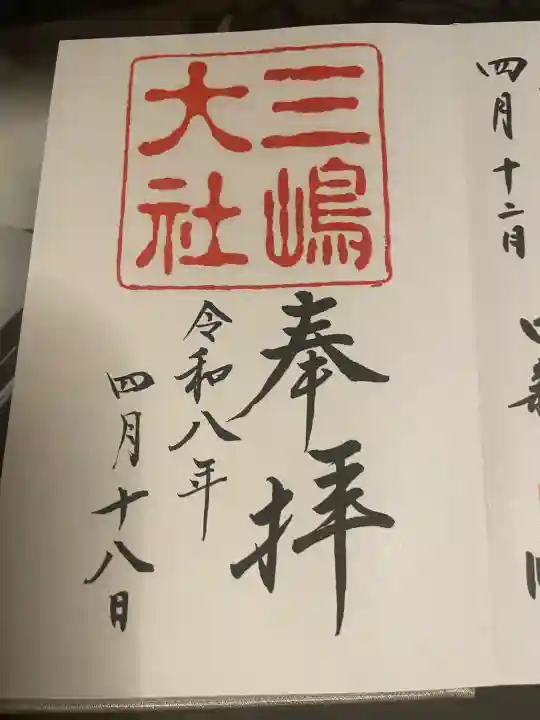 三嶋
大社
奉拝
令和八年
四月十八日
四月十二日